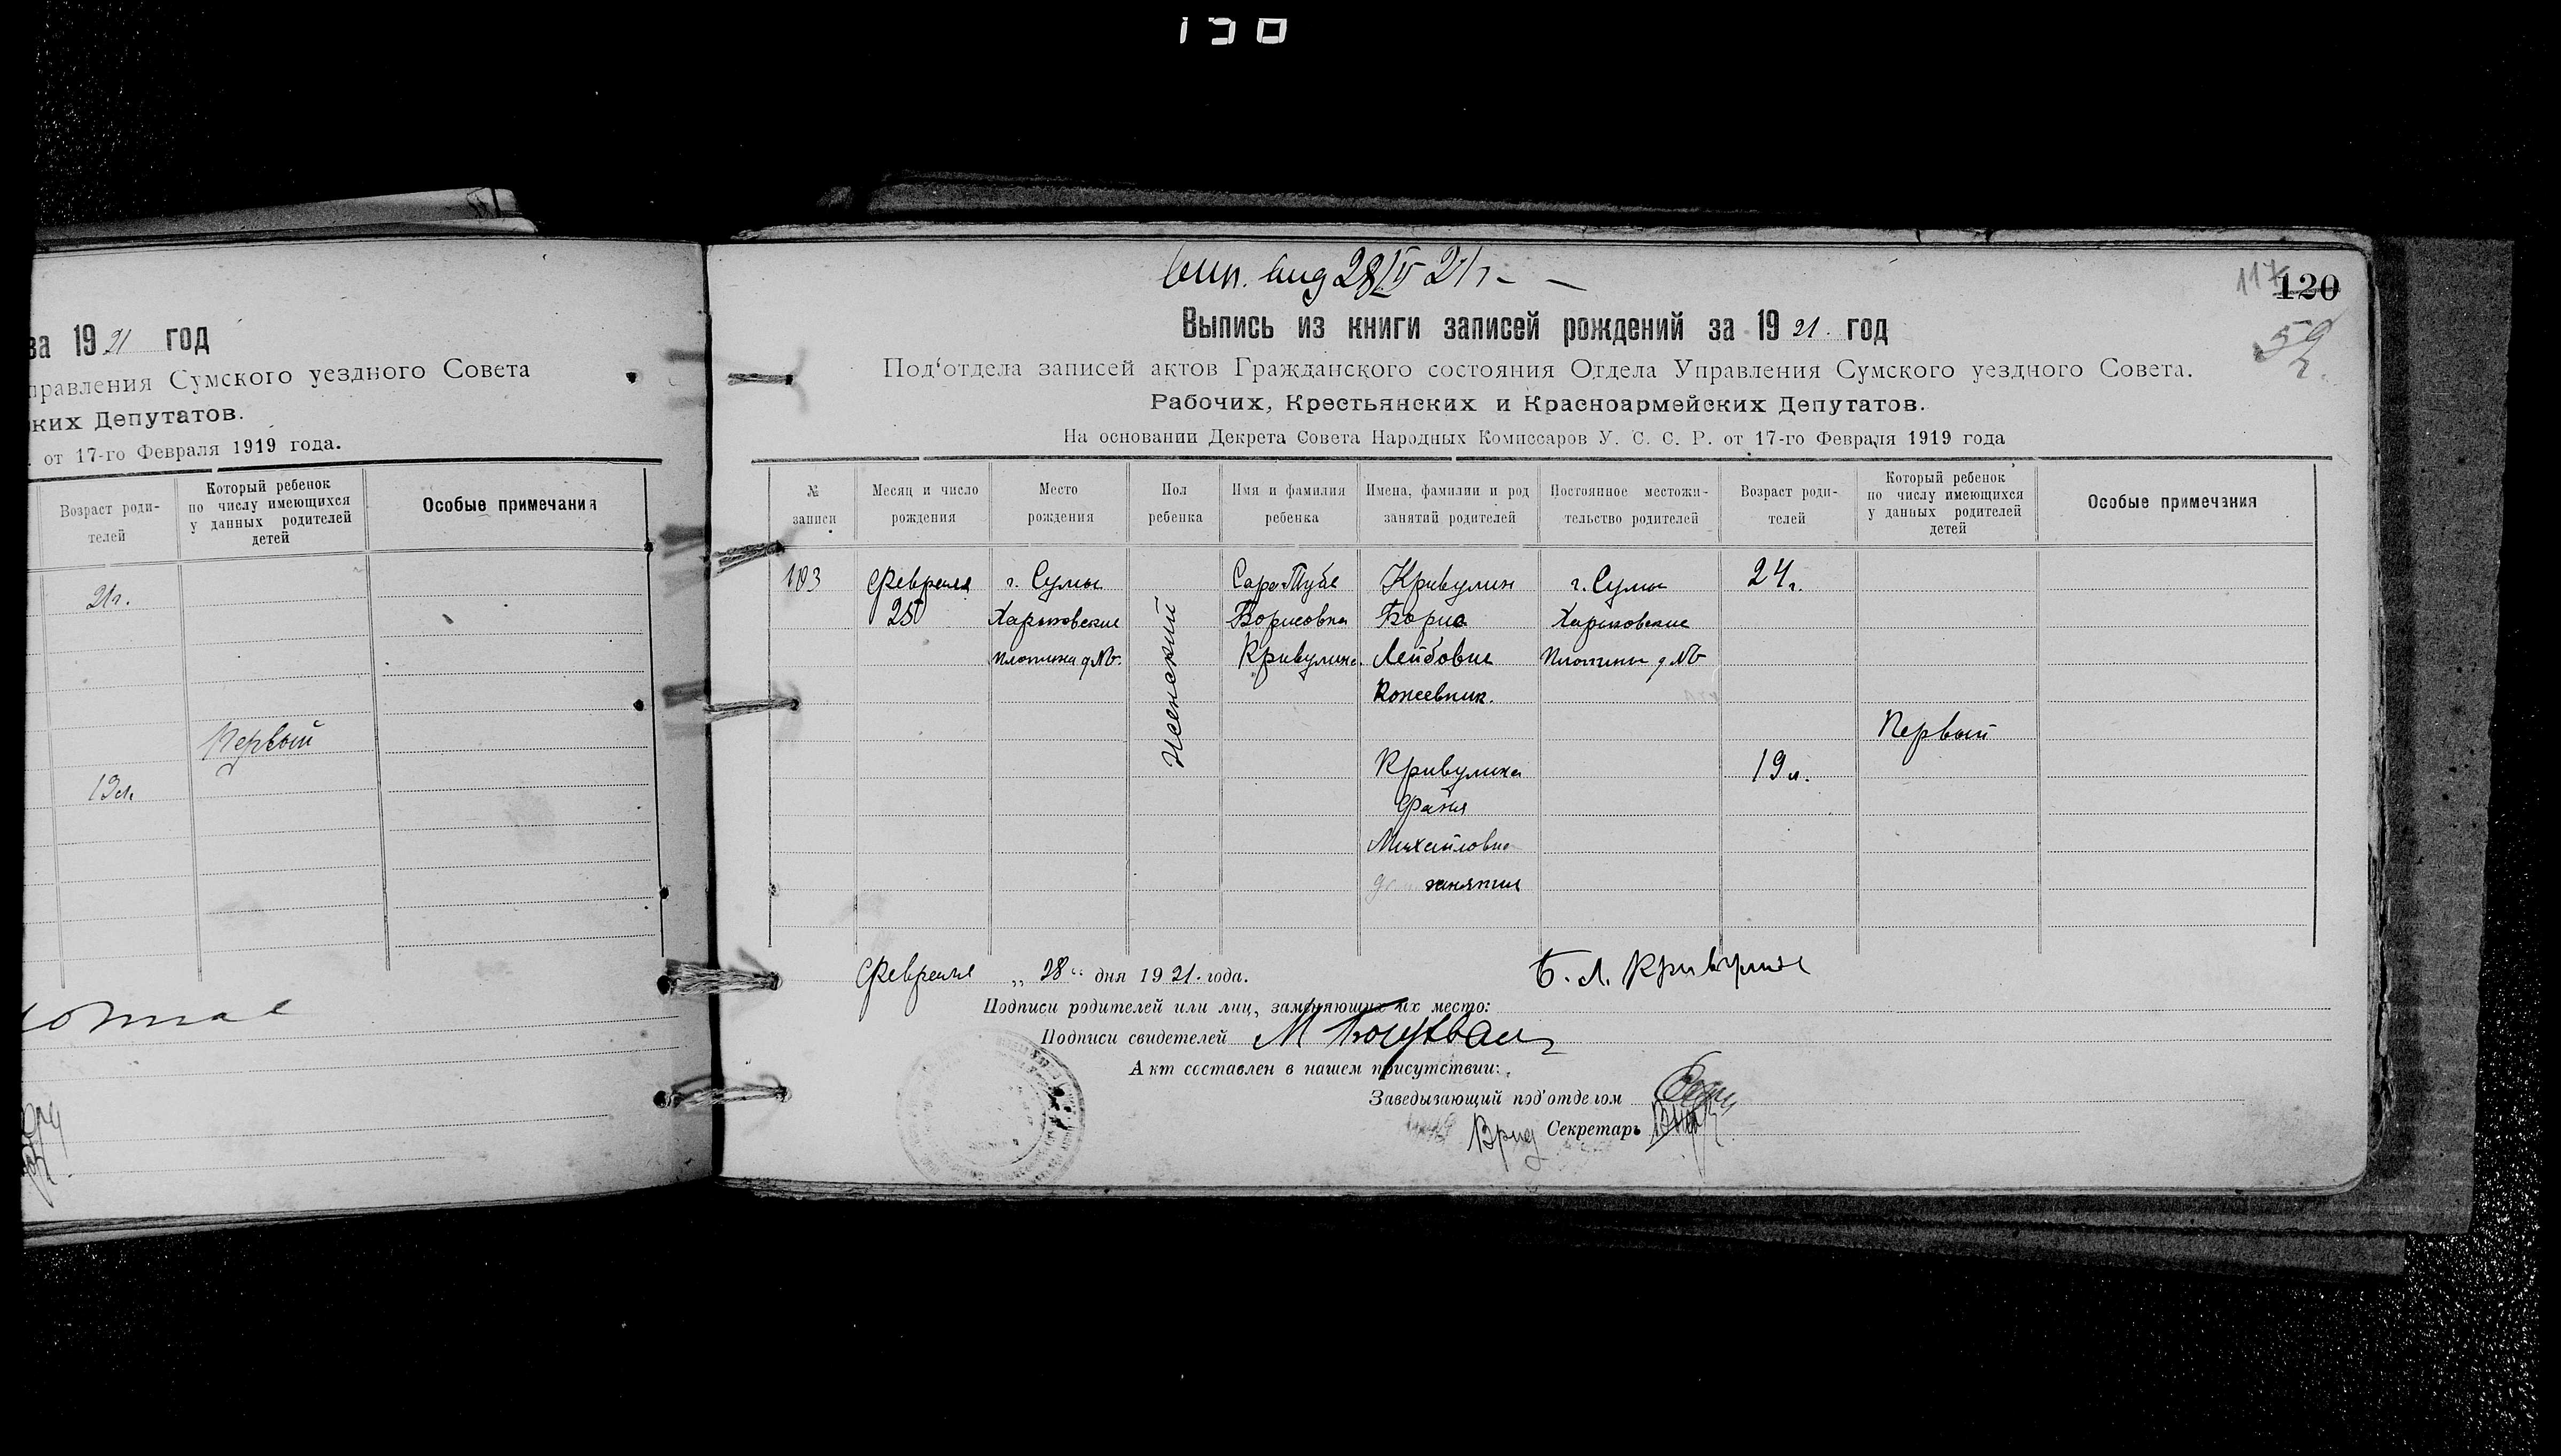 за 1921 год
правления Сумского уездного Совета
ких Депутатов.
от 17-го Февраля 1919 года.
Возраст роди-
телей
Который ребенок
по числу имеющихся
у данных родителей
детей
Особые примечания
21г.
Первый
19л.
117
120
59
Выпись из книги записей рождений за 1921. год
Под'отдела записей актов Гражданского состояния Отдела Управления Сумского уездного Совета.
Рабочих, Крестьянских и Красноармейских Депутатов.
На основании Декрета Совета Народных Комиссаров У. С. С. Р. от 17-го Февраля 1919 года
№
записи
Месяц и число
рождения
Место
рождения
Пол
ребенка
Имя и фамилия
ребенка
Имена, фамилии и род
занятий родителей
Постоянное местожи-
тельство родителей
Возраст роди-
телей
Который ребенок
по числу имеющихся
у данных родителей
детей
Особые примечания
103
Февраля
25
г. Сумы
Харьковская
плотина д №
Женский
Сара Туба
Борисовна
Кривулина
Кривулин
Борис
Лейбович
Кожевник.
Кривулина
Файня
Михайловна
занятия
г. Сумы
Харьковская
плотина д №
24г.
19л.
Первый
Февраля „28“ дня 1921. года.
Б. Л. Кривулин
Подписи родителей или лиц, заменяющих их место:
Подписи свидетелей М
Акт составлен в нашем присутствии:
Заведывающий под'отделом
Врид Секретарь